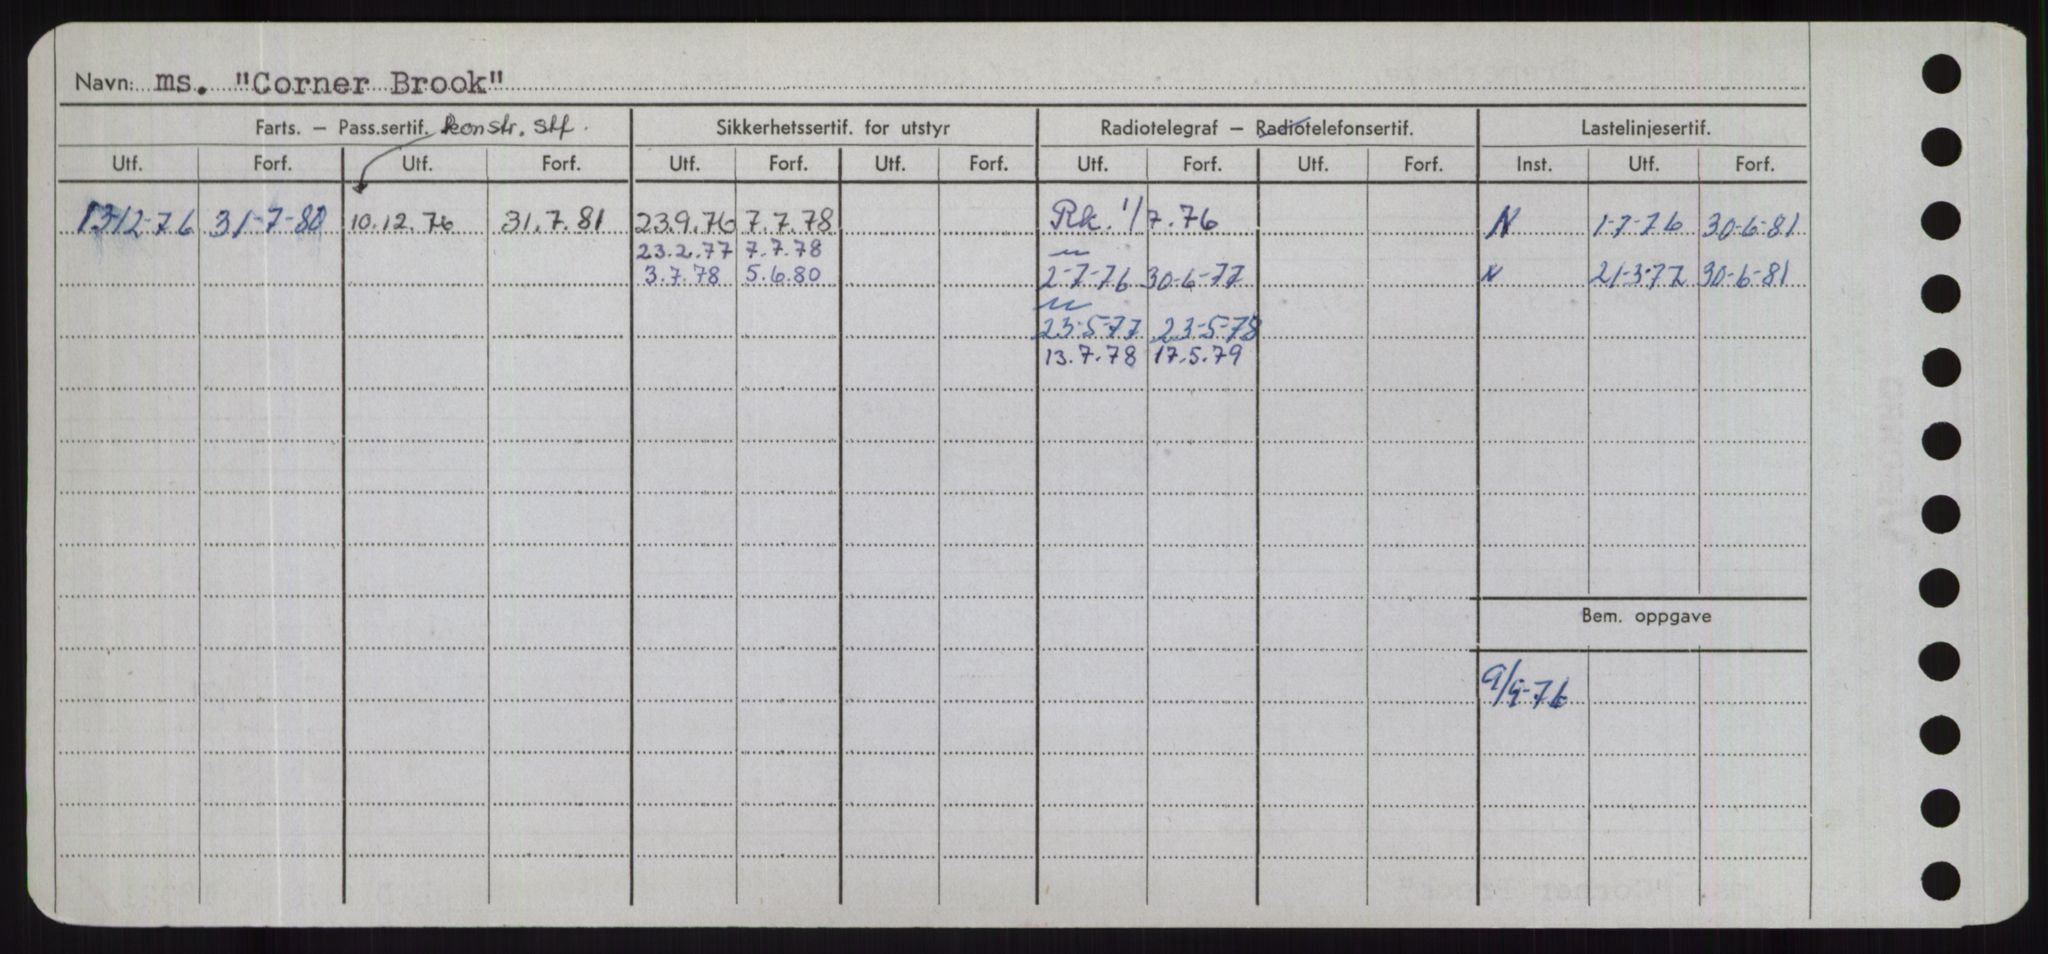 Navn: ms. "Corner Brook"
Farts. – Pass.sertif. konstr. stf. Sikkerhetssertif. for utstyr Radiotelegraf – Radiotelefonsertif. Lastelinjesertif.
Utf. Forf. Utf. Forf. Utf. Forf. Utf. Forf. Utf. Forf. Utf. Forf. Inst. Utf. Forf.
13-12-76 31-7-80 10.12.76 31.7.81 23.9.76 7.7.78 Rk. 1/7.76 N 1-7-76 30-6-81
23.2.77 7.7.78
3.7.78 5.6.80 2-7-76 30-6-77 N 21-3-77 30-6-81
23-5-77 23-5-78
13.7.78 17.5.79
Bem. oppgave
9/9-76